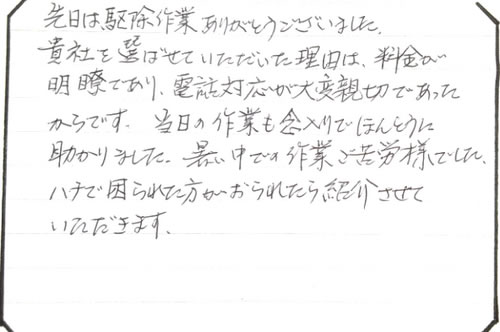 先日は駆除作業ありがとうございました。
貴社を選ばせていただいた理由は、料金が
明瞭であり、電話対応が大変親切であった
からです。当日の作業も念入りでほんとうに
助かりました。暑い中での作業ご苦労様でした。
ハチで困られた方がおられたら紹介させて
いただきます。